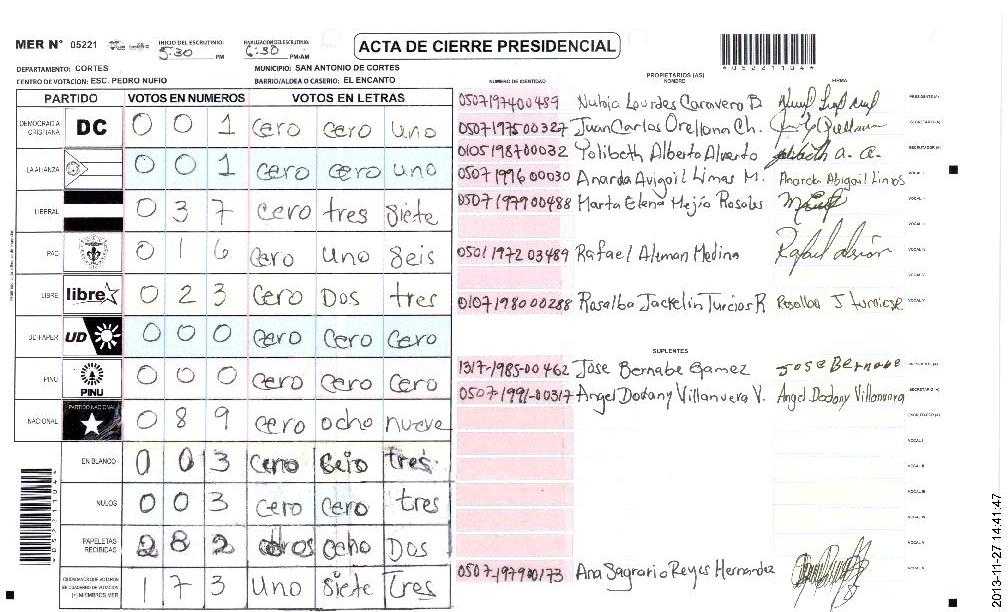 MER N° 05221 INICIO DEL ESCRUTINIO: 5:30 PM FINALIZACION DEL ESCRUTINIO: 6:30 PM/AM
ACTA DE CIERRE PRESIDENCIAL
DEPARTAMENTO: CORTES MUNICIPIO: SAN ANTONIO DE CORTES
CENTRO DE VOTACION: ESC. PEDRO NUFIO BARRIO/ALDEA O CASERIO: EL ENCANTO
NUMERO DE IDENTIDAD PROPIETARIOS (AS) NOMBRE FIRMA
PARTIDO VOTOS EN NUMEROS VOTOS EN LETRAS
DEMOCRACIA CRISTIANA DC 0 0 1 cero cero uno
LA ALIANZA 0 0 1 cero cero uno
LIBERAL 0 3 7 cero tres siete
PAC 0 1 6 cero uno seis
LIBRE libre 0 2 3 cero Dos tres
UD-FAPER UD 0 0 0 cero cero cero
PINU PINU 0 0 0 cero cero cero
NACIONAL PARTIDO NACIONAL 0 8 9 cero ocho nueve
EN BLANCO 0 0 3 cero tres
NULOS 0 0 3 cero cero tres
PAPELETAS RECIBIDAS 2 8 2 ocho Dos
CIUDADANOS QUE VOTARON EN CUADERNO DE VOTACION (+) MIEMBROS MER 1 7 3 Uno siete tres
0507197400489 Nubia Lourdes B PRESIDENTE (A)
0507197500327 Juan Carlos Orellana Ch. SECRETARIO (A)
0105198700032 Yolibeth Alberto Alverto yolibeth a. a. ESCRUTADOR (A)
0507199600030 Anarda Avigail Limas M. Anarda Abigail Limos VOCAL I
0507197900488 Marta Elena Mejia Rosales VOCAL II
0501197203489 Rafael Aleman Medina VOCAL IV
0107198000288 Rosalba Jackelin Turcios R Rosalba J turciose VOCAL V
SUPLENTES
1317-1985-00462 Jose Bernabe Gamez Jose Bernabe PRESIDENTE (A)
0507-1991-00317 Angel Dodany Villanueva V. Angel Dodany Villanueva SECRETARIO (A)
ESCRUTADOR (A)
VOCAL I
VOCAL II
VOCAL III
VOCAL IV
VOCAL V
0507-197900173 Ana Sagrario Reyes Hernandez
2013-11-27 14:41:47